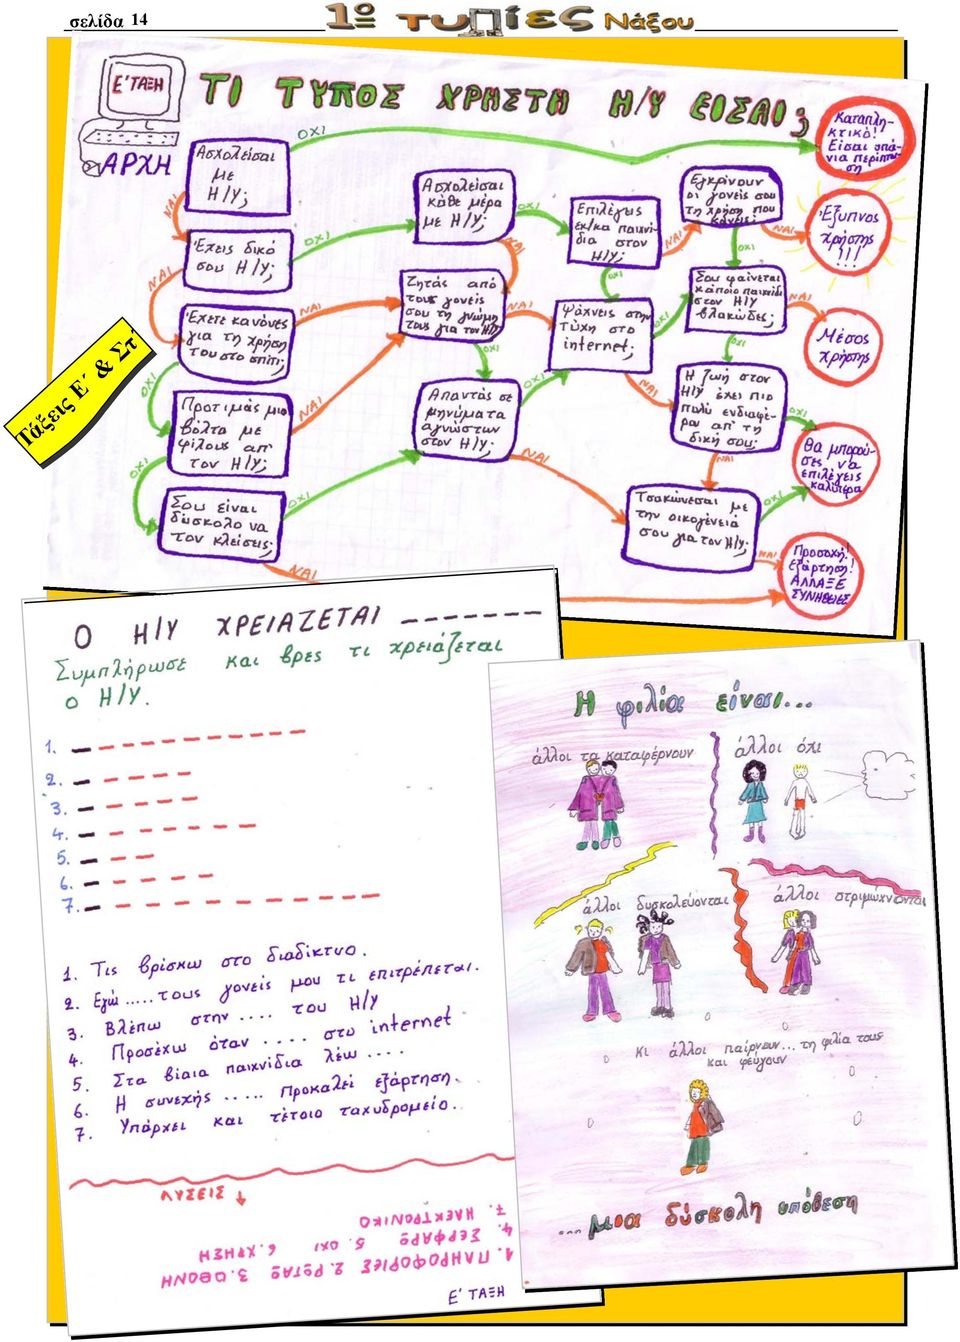 σελίδα 14
1ο ΤυΠίες Νάξου
Τάξεις Ε΄ & Στ΄
Ε' ΤΑΞΗ
ΤΙ ΤΥΠΟΣ ΧΡΗΣΤΗ Η/Υ ΕΙΣΑΙ;
ΑΡΧΗ
Ασχολείσαι
με
Η/Υ;
ΟΧΙ
Καταπλη-
κτικό!
Είσαι σπά-
νια περίπτω-
ση
ΝΑΙ
Έχεις δικό
σου Η/Υ;
ΟΧΙ
Ασχολείσαι
κάθε μέρα
με Η/Υ;
ΟΧΙ
ΝΑΙ
Επιλέγεις
εκ/κα παιχνί-
δια στον
Η/Υ;
ΝΑΙ
ΟΧΙ
Εγκρίνουν
οι γονείς σου
τη χρήση που
κάνεις;
ΝΑΙ
ΟΧΙ
Έξυπνος
χρήστης
!!!
ΝΑΙ
Έχετε κανόνες
για τη χρήση
του στο σπίτι;
ΝΑΙ
ΟΧΙ
Ζητάς από
τους γονείς
σου τη γνώμη
τους για τον Η/Υ;
ΝΑΙ
ΟΧΙ
Ψάχνεις στην
τύχη στο
internet;
ΟΧΙ
ΝΑΙ
Σου φαίνεται
κάποιο παιχνίδι
στον Η/Υ
βλακώδες;
ΝΑΙ
ΟΧΙ
Μέσος
χρήστης
Προτιμάς μια
βόλτα με
φίλους απ'
τον Η/Υ;
ΝΑΙ
ΟΧΙ
Απαντάς σε
μηνύματα
αγνώστων
στον Η/Υ;
ΟΧΙ
ΝΑΙ
Η ζωή στον
Η/Υ έχει πιο
πολύ ενδιαφέ-
ρον απ' τη
δική σου;
ΟΧΙ
ΝΑΙ
Θα μπορού-
σες να
επιλέγεις
καλύτερα
Σου είναι
δύσκολο να
τον κλείσεις;
ΟΧΙ
ΝΑΙ
Τσακώνεσαι με
την οικογένειά
σου για τον Η/Υ;
ΟΧΙ
ΝΑΙ
Προσοχή!
εξάρτηση!
ΑΛΛΑΞΕ
ΣΥΝΗΘΕΙΕΣ
Ο Η/Υ ΧΡΕΙΑΖΕΤΑΙ _ _ _ _ _ _ _
Συμπλήρωσε και βρες τι χρειάζεται
ο Η/Υ.
1.
2.
3.
4.
5.
6.
7.
1. Τις βρίσκω στο διαδίκτυο.
2. Εγώ ..... τους γονείς μου τι επιτρέπεται.
3. Βλέπω στην .... του Η/Υ
4. Προσέχω όταν .... στο internet
5. Στα βίαια παιχνίδια λέω ....
6. Η συνεχής ..... προκαλεί εξάρτηση.
7. Υπάρχει και τέτοιο ταχυδρομείο.
ΛΥΣΕΙΣ
1. ΠΛΗΡΟΦΟΡΙΕΣ 2. ΡΩΤΑΩ 3. ΟΘΟΝΗ
4. ΣΕΡΦΑΡΩ 5. ΟΧΙ 6. ΧΡΗΣΗ
7. ΗΛΕΚΤΡΟΝΙΚΟ
Ε' ΤΑΞΗ
Η φιλία είναι...
άλλοι τα καταφέρνουν
άλλοι όχι
άλλοι δυσκολεύονται
άλλοι στριμώχνονται
κι άλλοι παίρνουν... τη φιλία τους
και φεύγουν
...μια δύσκολη υπόθεση